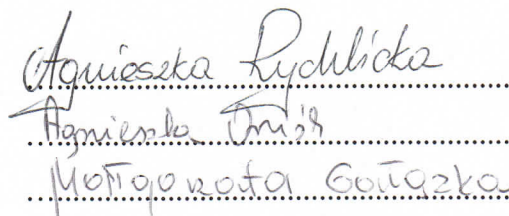 Agnieszka Rychlicka
Agnieszka
Małgorzata Gołązka